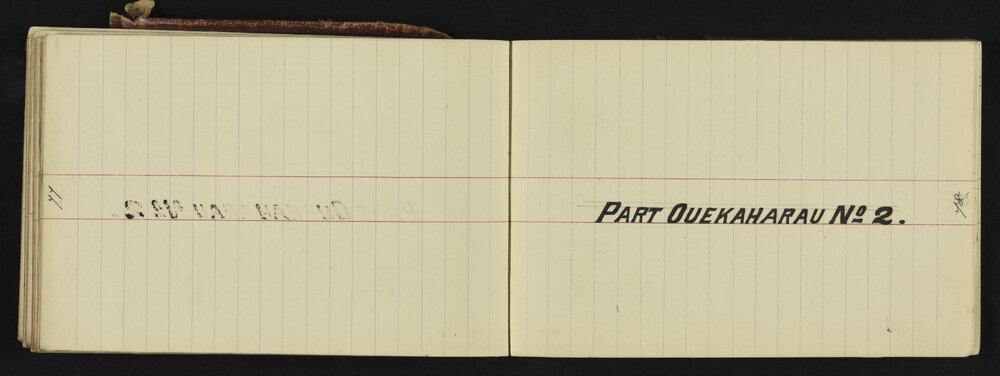 77
PART OUEKAHARAU Nº 2.
78